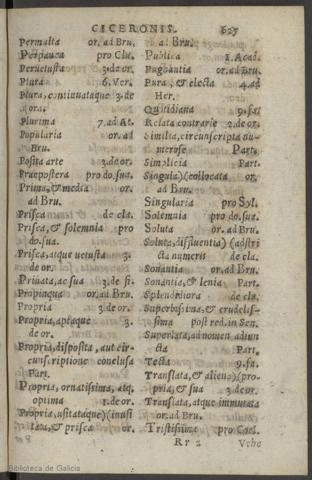 CICERONIS. 627
Permulta or. ad Bru.
Perpauca pro Clu.
Peruetusta 3. de or.
Plura 6. Ver.
Plura, continuataque 3. de
ora.
Plurima 7. ad At.
Popularia or. ad
Bru.
Posita arte 3. de or.
Præpostera pro do. sua.
Prima, & media or.
ad Bru.
Prisca de cla.
Prisca, & solemnia pro
do. sua.
Prisca, atque uetusta 3.
de or.
Priuata, ac sua 3. de fi.
Propinqua or. ad Bru.
Propria 3. de or.
Propria, aptaque 3.
de or.
Propria, disposita, aut cir-
cunscriptione conclusa
Part.
Propria, ornatissima, atq.
optima 1. de or.
Propria, usitataque)(inusi
tata, & prisca or.
ad Bru.
Publica 1. Acad.
Pugnantia or. ad Bru.
Pura, & electa 4. ad
Her.
Quotidiana 9. fa.
Relata contrarie 2. de or.
Similia, circunscripta nu-
merose Part.
Simplicia Part.
Singula)(collocata or.
ad Bru.
Singularia pro Syl.
Solemnia pro do. sua.
Soluta or. ad Bru.
Soluta, diffluentia)(adstri
cta numeris de cla.
Sonantia or. ad Bru.
Sonantia, & lenia Part.
Splendidiora de cla.
Superbissima, & crudelis-
sima post red. in Sen.
Superlata, ad nomen adiun
cta Part.
Tecta 9. fa.
Translata, & aliena)(pro-
pria, & sua 3. de or.
Translata, atque immutata
or. ad Bru.
Tristissima pro Cael.
Rr 2 Vehe
Biblioteca de Galicia